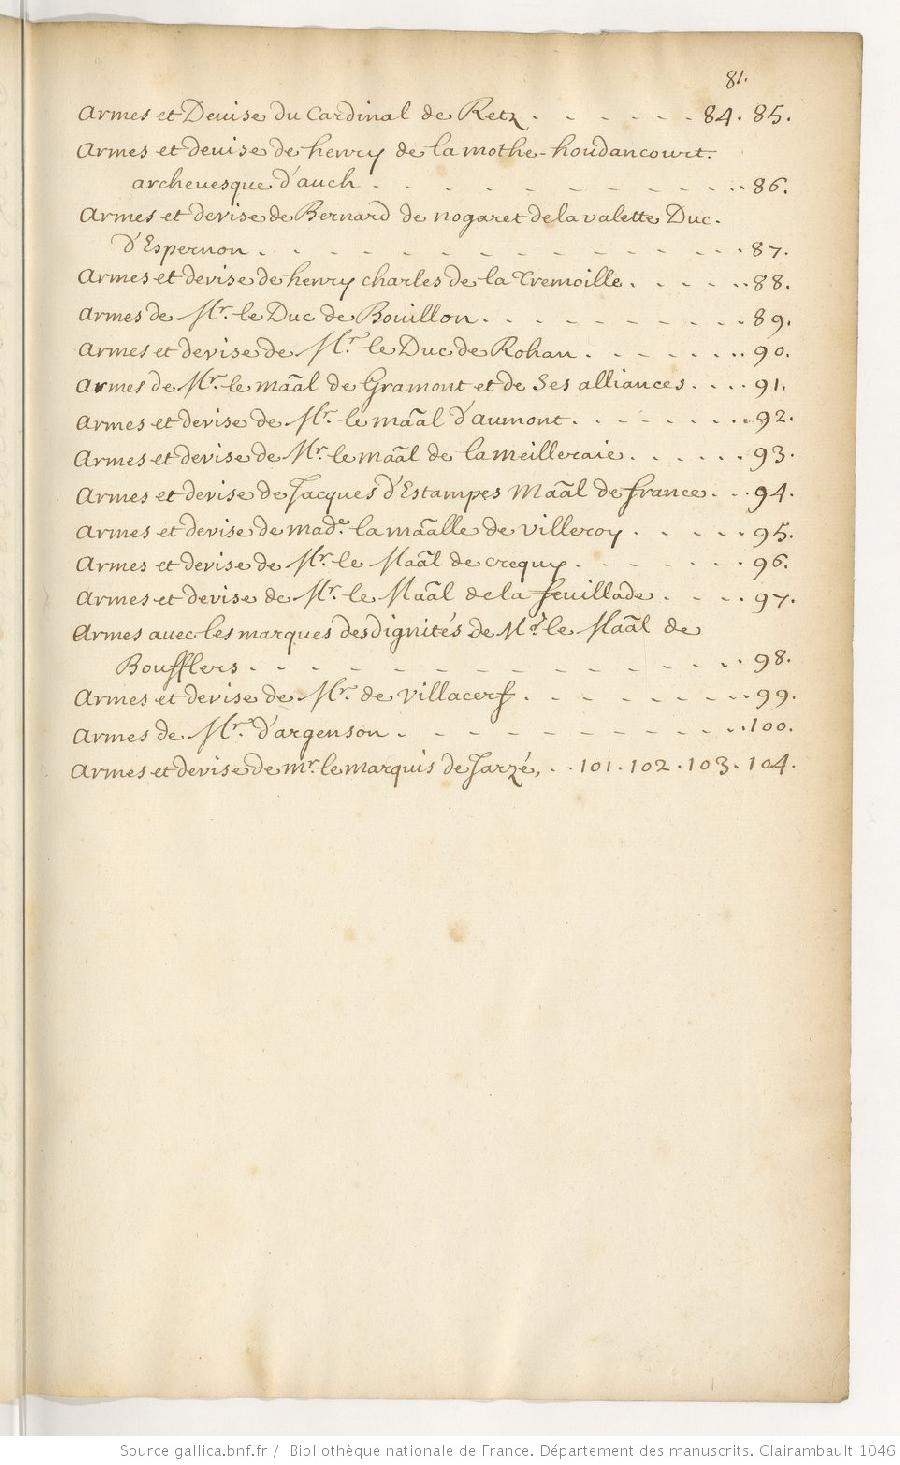 81.
Armes et Deuise du Cardinal de Retz . - - - - - - 84. 85.
Armes et deuise de henry de la mothe-houdancourt.
archeuesque d'auch . - - - - - - - - - .. 86.
Armes et devise de Bernard de nogaret de la valette Duc.
d'Espernon . - - - - - - - - - - - ... 87.
Armes et devise de henry charles de la Tremoille . . . . .. 88.
Armes de Mr. le Duc de Bouillon . - - - - - - .. 89.
Armes et devise de Mr. le Duc de Rohan . - - - - .. 90.
Armes de Mr. le maãl de Gramont et de Ses alliances . . . . 91.
Armes et devise de Mr. le maãl d'aumont . - - - - - .. 92.
Armes et devise de Mr. le maãl de la meilleraie . . . . . . 93.
Armes et devise de Jacques d'Estampes Maãl de france . . . 94.
Armes et devise de made. la maãlle de villeroy . . . . . 95.
Armes et devise de Mr. le Maãl de crequy . - - - - - 96.
Armes et devise de Mr. le Maãl de la feuillade . - - - . 97.
Armes avec les marques des dignités de Mr. le Maãl de
Boufflers . - - - - - - - - - - - - .. 98.
Armes et devise de Mr. de villacerf . - - - - - - .. 99.
Armes de Mr. d'argenson . - - - - - - - - ... 100.
Armes et devise de mr. le marquis de Jarzé, . . 101. 102. 103. 104.
Source gallica.bnf.fr / Bibliothèque nationale de France. Département des manuscrits. Clairambault 1046